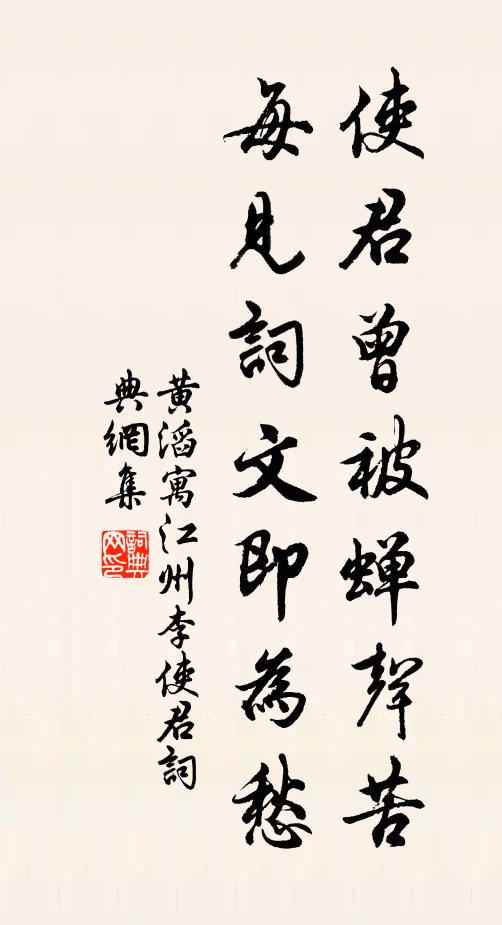 使君曾被蟬聲苦
每見詞文即為愁
黃滔寓江州李使君詞
典網集
詞典网印